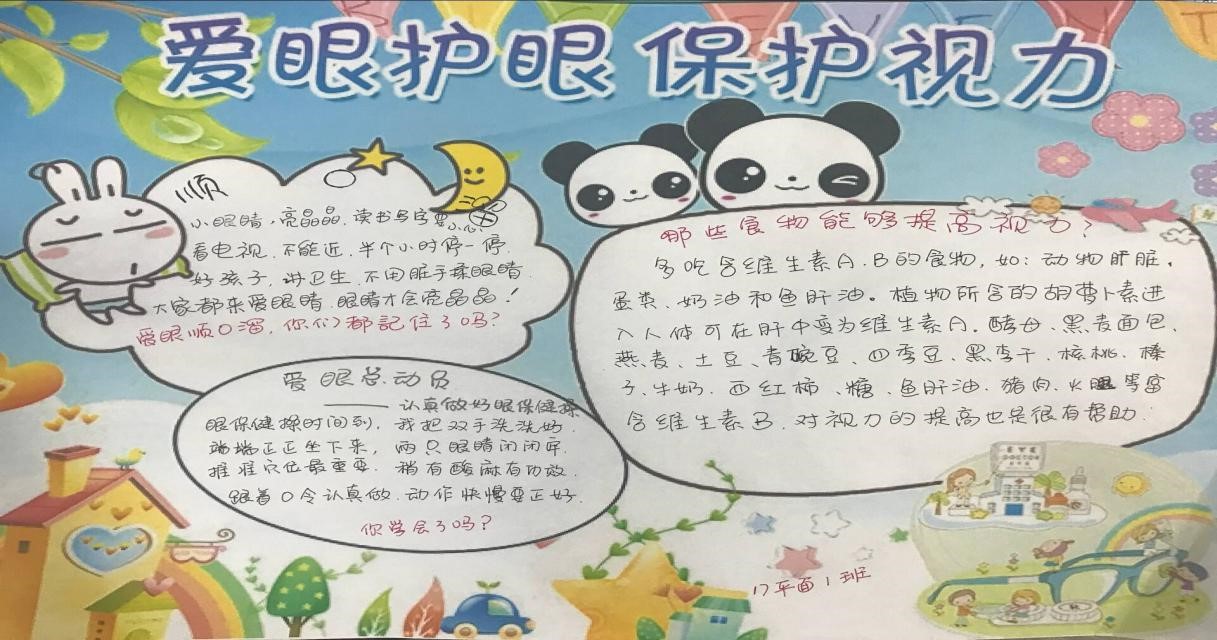 爱眼护眼 保护视力
顺
小眼睛,亮晶晶.读书写字要小心
看电视.不能近.半个小时停一停.
好孩子.讲卫生.不用脏手揉眼睛.
大家都来爱眼睛.眼睛才会亮晶晶!
爱眼顺口溜,你们都記住了吗?
爱眼总动员
——认真做好眼保健操
眼保健操时间到,我把双手洗洗好.
端端正正坐下来,两只眼睛闭闭牢.
推准穴位最重要.稍有酸麻有功效.
跟着口令认真做.动作快慢要正好.
你学会了吗?
那些食物能够提高视力?
多吃含维生素A.B的食物,如:动物肝脏,
蛋类、奶油和鱼肝油。植物所含的胡萝卜素进
入人体可在肝中变为维生素A.酵母、黑麦面包、
燕麦、土豆、青豌豆、四季豆、黑李干、核桃、榛
子、牛奶、西红柿、糖、鱼肝油、猪肉、火腿等富
含维生素B.对视力的提高也是很有帮助.
EYE
DOCTOR
17平面1班